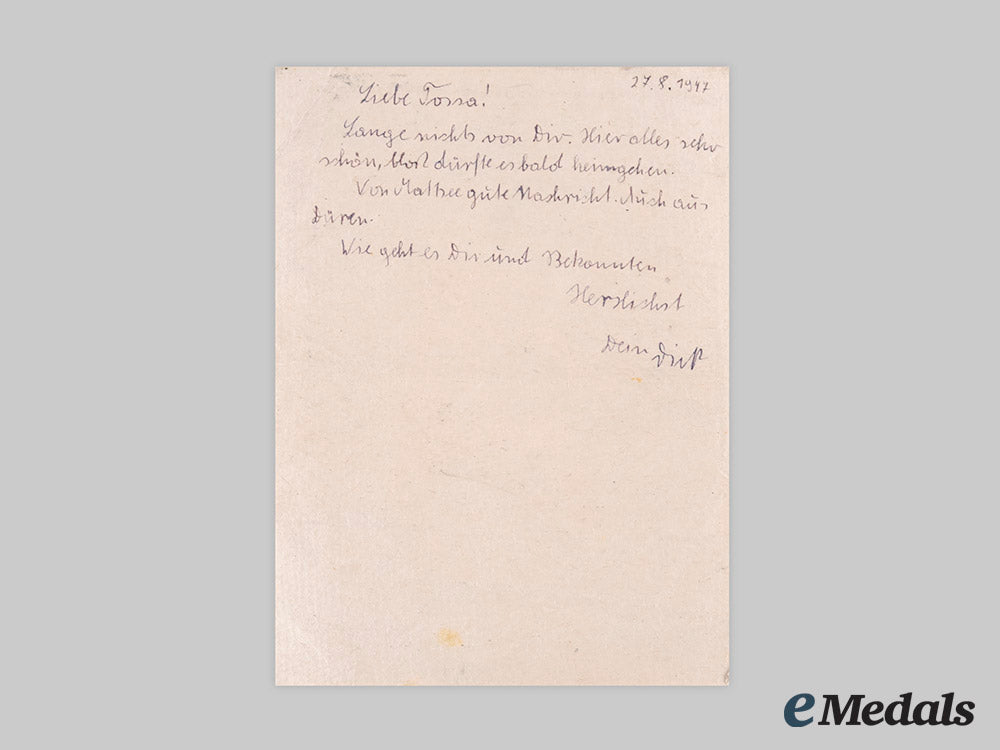 27.8.1947
Liebe Tossa!
Lange nichts von Dir. Hier alles sehr
schön, dürfte es bald heimgehen.
Von Mattsee gute Nachricht. Auch aus
Düren.
Wie geht es Dir und Bekannten
Herzlichst
Dein Dirk
eMedals